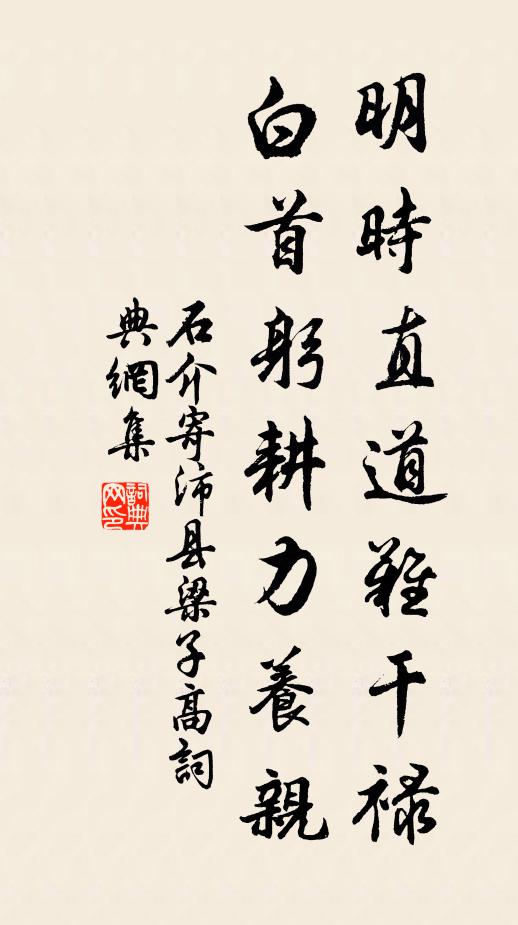 明時直道難干禄
白首躬耕力養親
石介寄沛县梁子高詞
典網集
詞典
网印